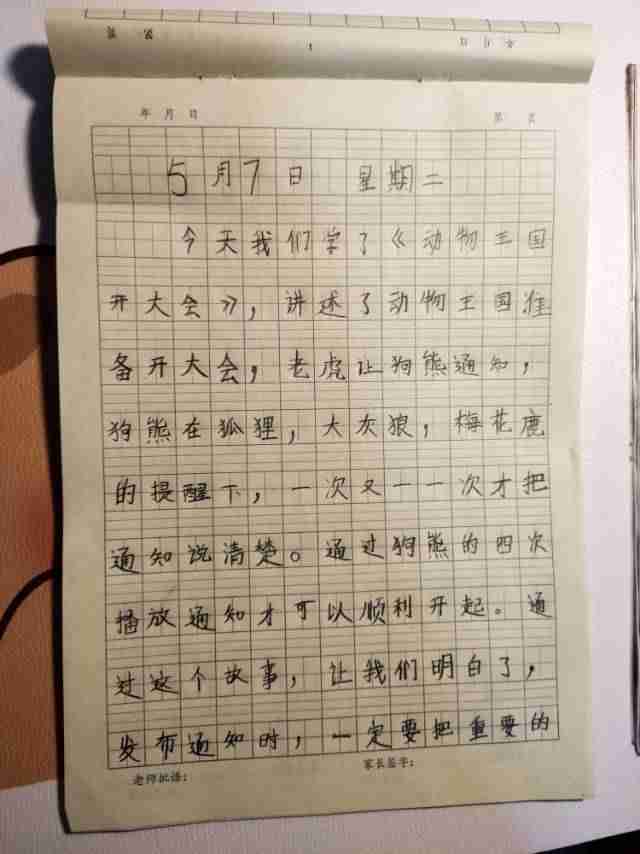 年 月 日 第 页
5月7日 星期二
今天我们学了《动物王国
开大会》，讲述了动物王国准
备开大会，老虎让狗熊通知，
狗熊在狐狸，大灰狼，梅花鹿
的提醒下，一次又一一次才把
通知说清楚。通过狗熊的四次
播放通知才可以顺利开起。通
过这个故事，让我们明白了，
发布通知时，一定要把重要的
老师批语： 家长签字：